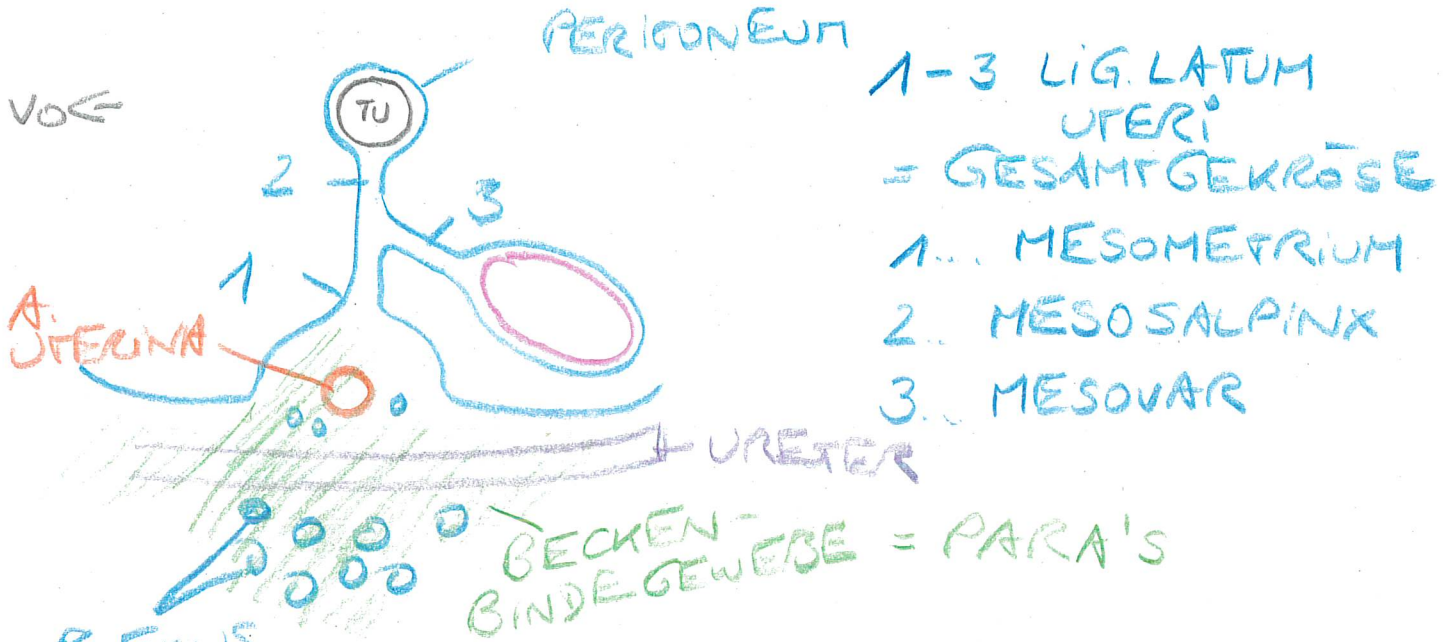 PERITONEUM
VO←
TU
2
3
1
A.
UTERINA
1-3 LIG. LATUM
UTERI
= GESAMTGEKRÖSE
1... MESOMETRIUM
2.. MESOSALPINX
3... MESOVAR
URETER
BECKEN-
BINDEGEWEBE = PARA'S